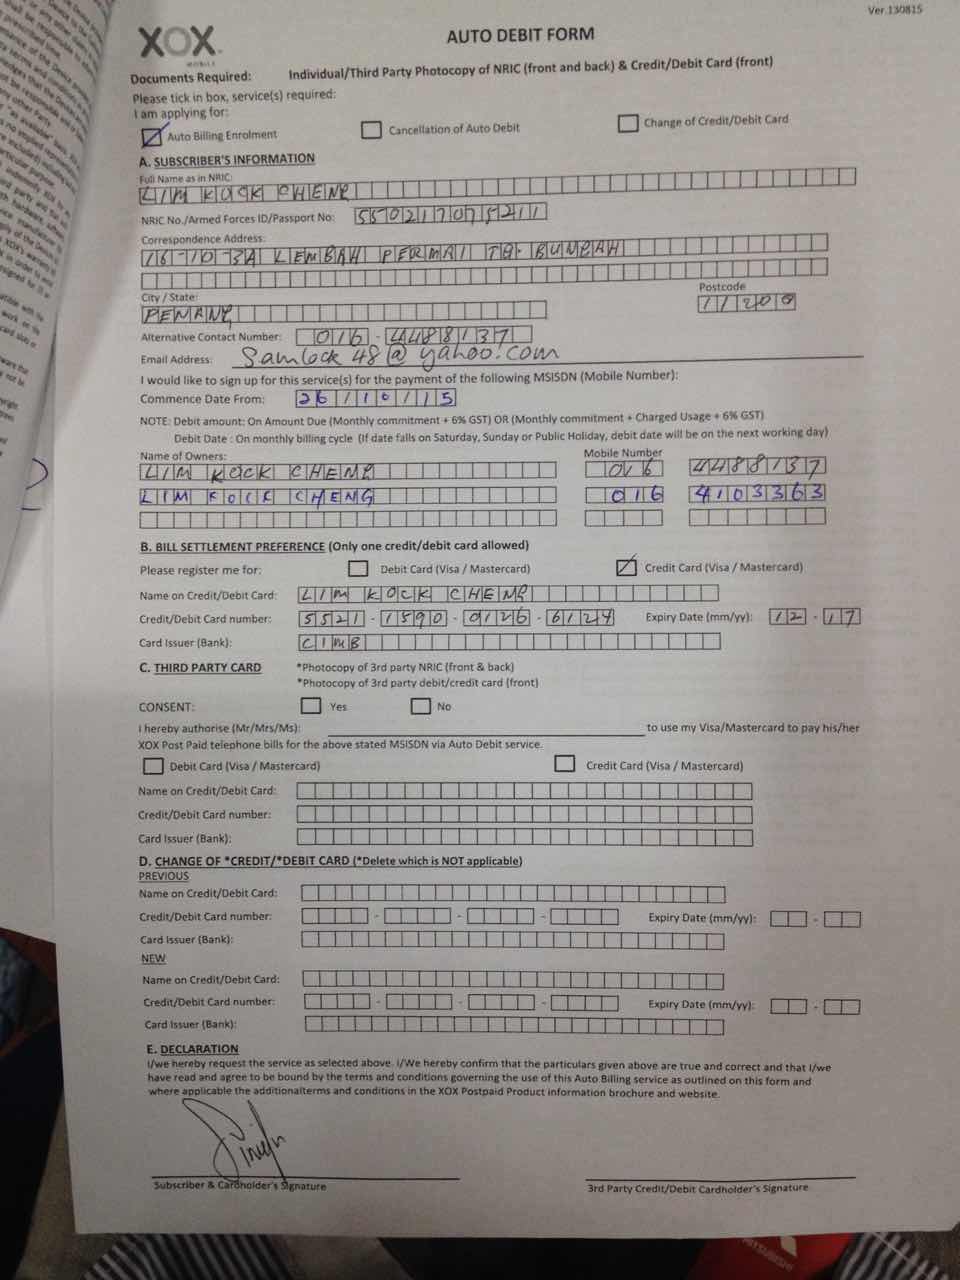 Ver.130815
XOX
MOBILE
AUTO DEBIT FORM
Documents Required: Individual/Third Party Photocopy of NRIC (front and back) & Credit/Debit Card (front)
Please tick in box, service(s) required:
I am applying for:
Auto Billing Enrolment Cancellation of Auto Debit Change of Credit/Debit Card
A. SUBSCRIBER'S INFORMATION
Full Name as in NRIC:
LIM KOCK CHENG
NRIC No./Armed Forces ID/Passport No: 550217075211
Correspondence Address:
16-10-3A LEMBAH PERMAI TG. BUNGAH
City / State: Postcode
PENANG 11200
Alternative Contact Number: 016 - 4488137
Email Address: Samlock48@yahoo.com
I would like to sign up for this service(s) for the payment of the following MSISDN (Mobile Number):
Commence Date From: 26/10/15
NOTE: Debit amount: On Amount Due (Monthly commitment + 6% GST) OR (Monthly commitment + Charged Usage + 6% GST)
Debit Date : On monthly billing cycle (If date falls on Saturday, Sunday or Public Holiday, debit date will be on the next working day)
Name of Owners: Mobile Number
LIM KOCK CHENG 016 4488137
LIM KOCK CHENG 016 4103363
B. BILL SETTLEMENT PREFERENCE (Only one credit/debit card allowed)
Please register me for: Debit Card (Visa / Mastercard) Credit Card (Visa / Mastercard)
Name on Credit/Debit Card: LIM KOCK CHENG
Credit/Debit Card number: 5521 - 1590 - 0126 - 6124 Expiry Date (mm/yy): 12 - 17
Card Issuer (Bank): CIMB
C. THIRD PARTY CARD *Photocopy of 3rd party NRIC (front & back)
*Photocopy of 3rd party debit/credit card (front)
CONSENT: Yes No
I hereby authorise (Mr/Mrs/Ms): to use my Visa/Mastercard to pay his/her
XOX Post Paid telephone bills for the above stated MSISDN via Auto Debit service.
Debit Card (Visa / Mastercard) Credit Card (Visa / Mastercard)
Name on Credit/Debit Card:
Credit/Debit Card number:
Card Issuer (Bank):
D. CHANGE OF *CREDIT/*DEBIT CARD (*Delete which is NOT applicable)
PREVIOUS
Name on Credit/Debit Card:
Credit/Debit Card number: - - - Expiry Date (mm/yy): -
Card Issuer (Bank):
NEW
Name on Credit/Debit Card:
Credit/Debit Card number: - - - Expiry Date (mm/yy): -
Card Issuer (Bank):
E. DECLARATION
I/we hereby request the service as selected above. I/We hereby confirm that the particulars given above are true and correct and that I/we
have read and agree to be bound by the terms and conditions governing the use of this Auto Billing service as outlined on this form and
where applicable the additionalterms and conditions in the XOX Postpaid Product information brochure and website.
Subscriber & Cardholder's Signature 3rd Party Credit/Debit Cardholder's Signature
MITSUBISHI